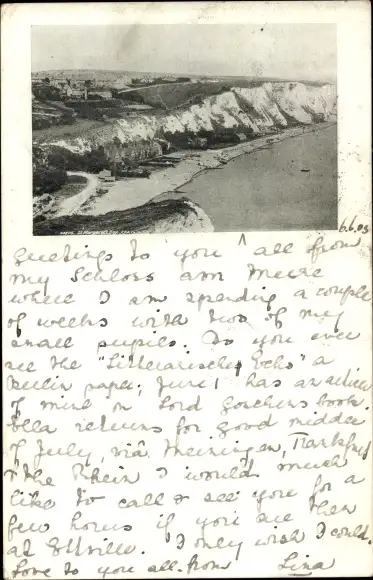 St Margaret's Bay
6.6.03
Greetings to you ^ all from
my Schloss am Meere
where I am spending a couple
of weeks with two of my
small pupils. Do you ever
see the "Litterarische Echo" a
Berlin paper; June 1 has an article
of mine on Lord Goschens book.
Ella returns for good middle
of July, via Meiningen, Frankfurt
& the Rhein I would much
like to call & see you for a
few hours if you are then
at Eltville. I only wish I could.
Love to you all. from Lina